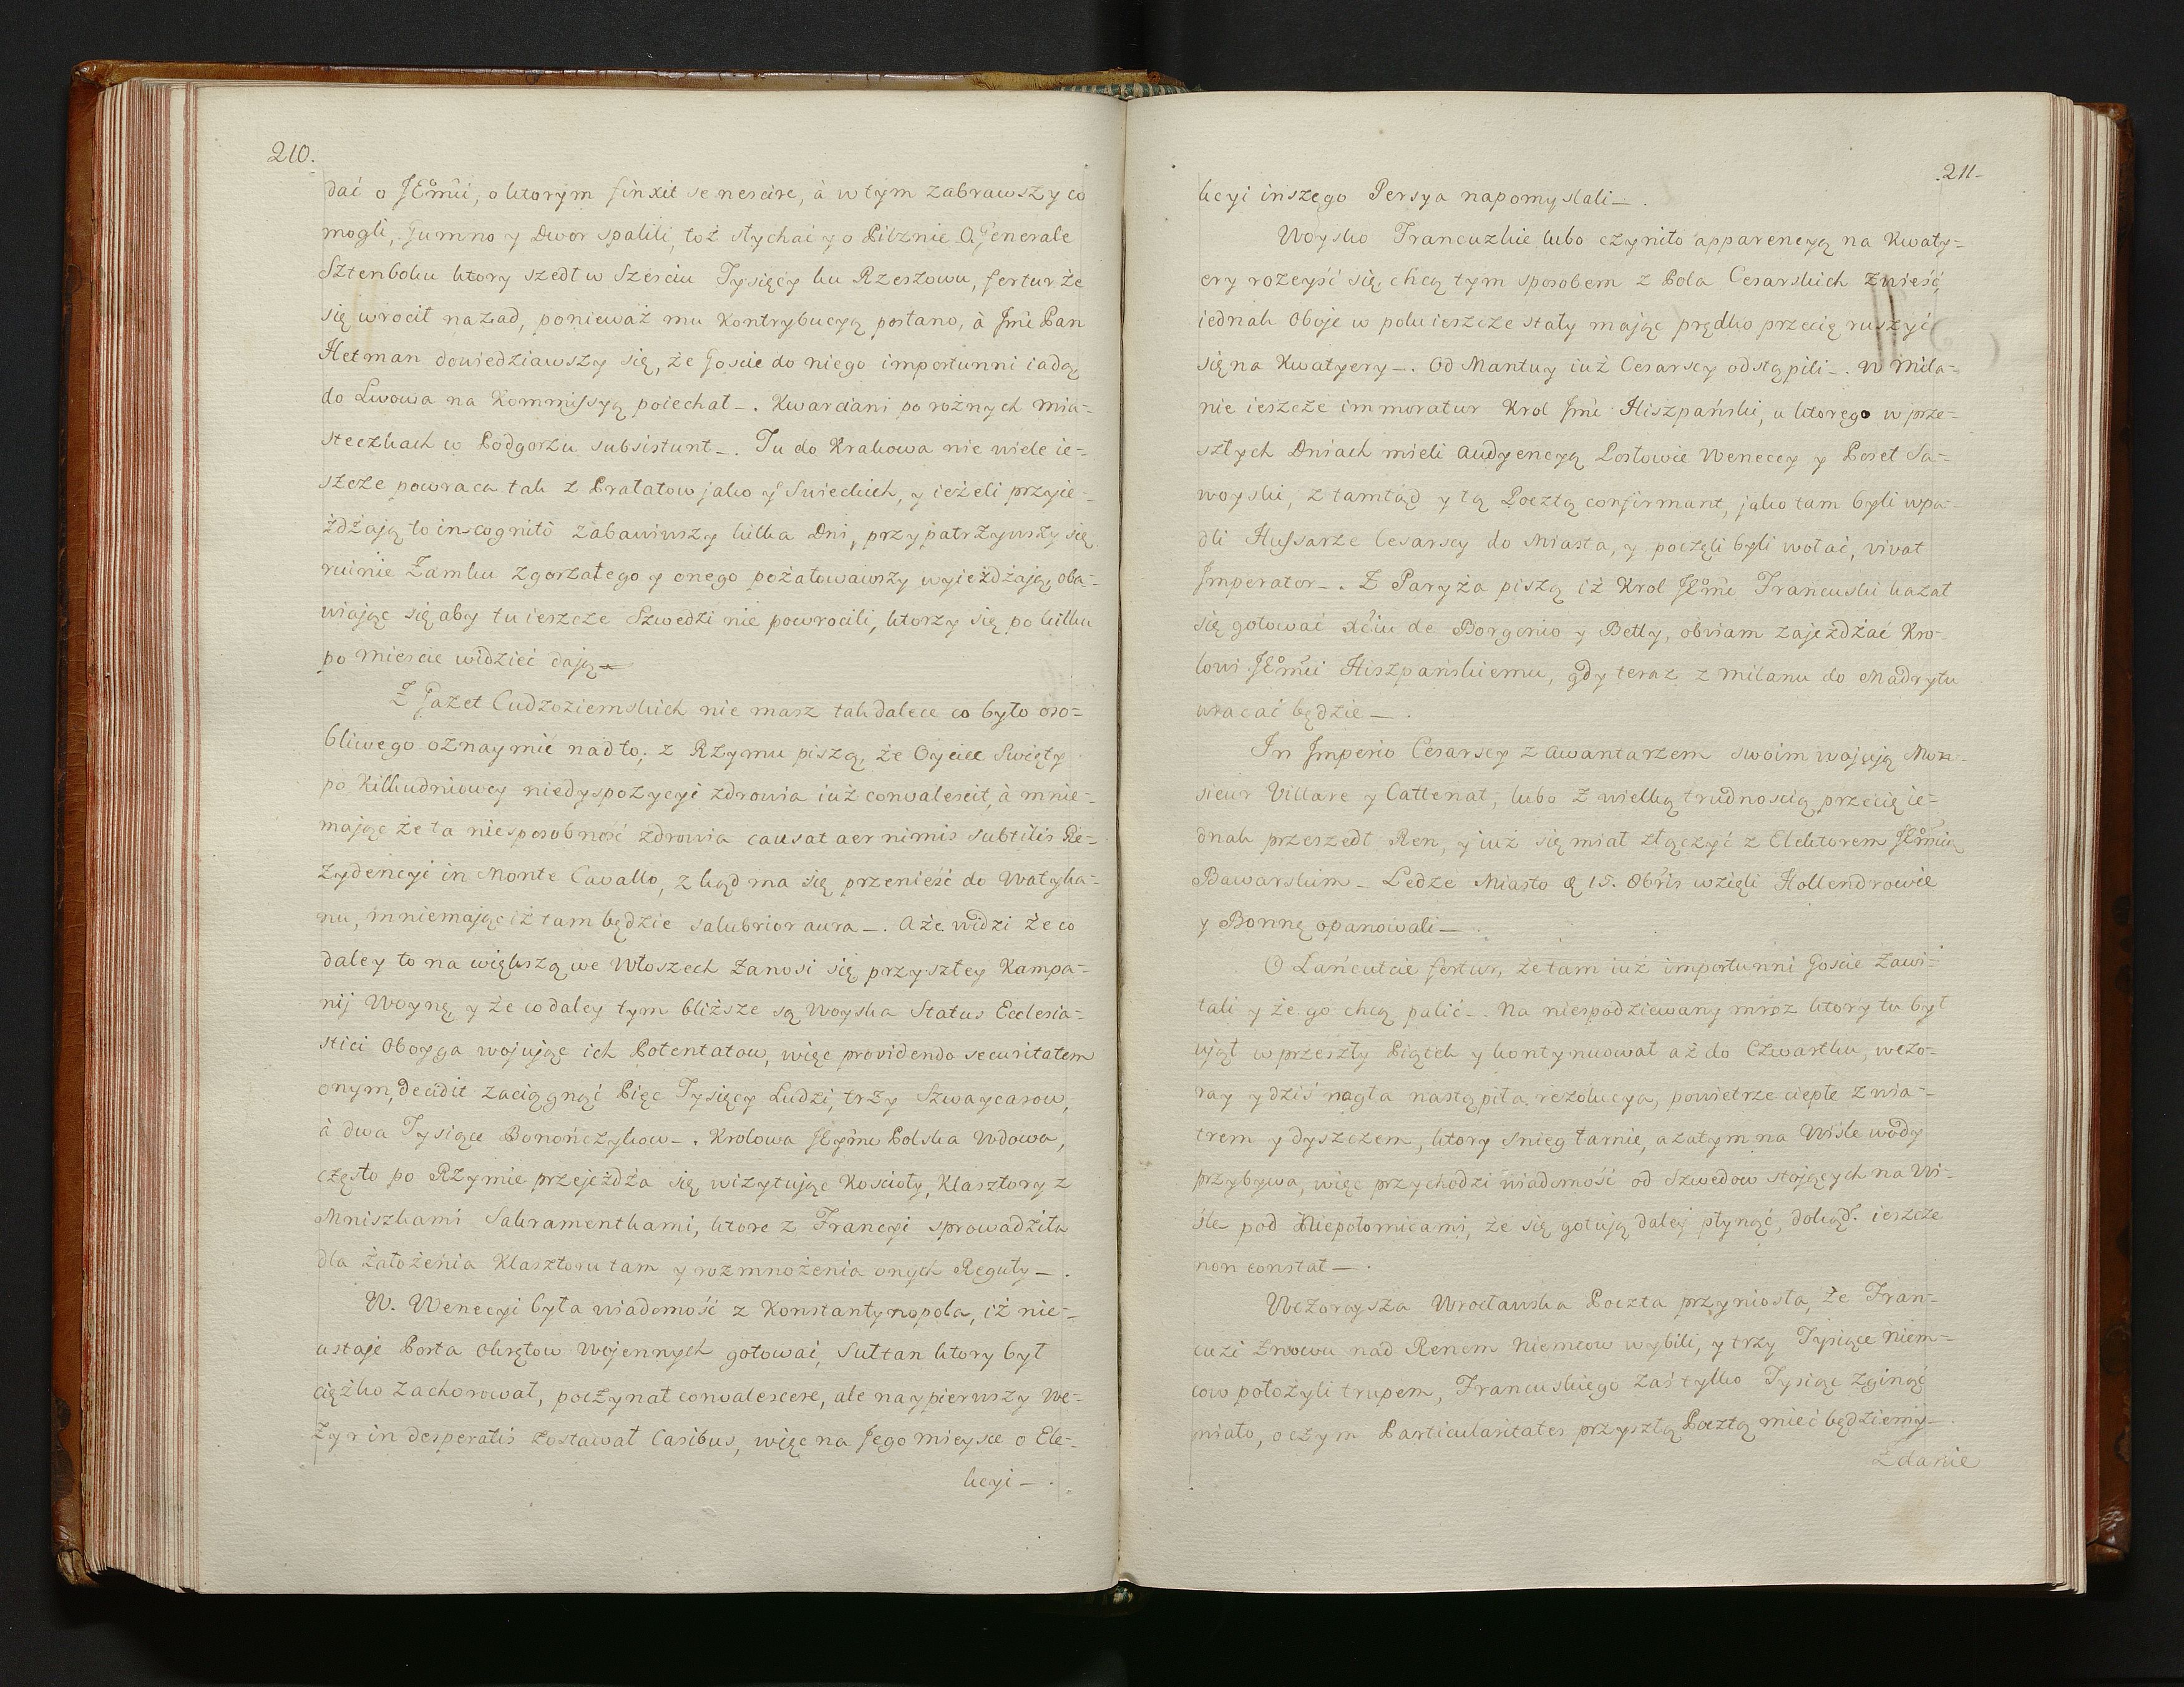 210.
dać o JEmći, o ktorym finxit se nescire, à w tym zabrawszy co
mogli, Gumno y Dwor spalili, toż słychać y o Pilznie. O Generale
Sztenboku ktory szedł w Sześciu Tysięcy ku Rzeszowu, fertur że
się wrocił nazad, ponieważ mu Kontrybucyą posłano, à Jmć Pan
Hetman dowiedziawszy się, że Goscie do niego importunni iadą
do Lwowa na Kommissyą poiechał _. Kwarciani po rożnych mia-
steczkach w Podgorzu subsistunt _. Tu do Krakowa nie wiele ie-
szcze powraca tak z Prałatow jako y Swieckich, y ieżeli przyie-
żdżają to incognitò zabawiwszy kilka Dni, przypatrzywszy się
ruinie Zamku zgorzałego y onego pożałowawszy wyieżdżają, oba-
wiając się aby tu ieszcze Szwedzi nie powrocili, ktorzy się po kilku
po miescie widzieć dają _
Z Gazet Cudzoziemskich nie masz tak dalece co było oso-
bliwego oznaymić nadto; z Rzymu piszą, że Oyciec Swięty
po Kilkudniowey niedyspozycyi zdrowia iuż convalescit, à mnie-
mając że ta niesposobność zdrowia causat aer nimis subtilis Re-
zydencyi in Monte Cavallo, zkąd ma się przenieść do Watyka-
nu, mniemając iż tam będzie salubrior aura _. A że widzi że co
daley to na większą we Włoszech zanosi się przyszłey Kampa-
nij Woynę, y że co daley tym bliższe są Woyska Status Ecclesia-
stici oboyga wojując ich Potentatow, więc providendo securitatem
onym, decidit zaciągnąć Pięc Tysięcy Ludzi, trzy Szwaycarow,
à dwa Tysiące Bonończykow _. Krolowa JEymć Polska Wdowa,
często po Rzymie przejeżdża się, wizytując Koscioły, Klasztory z
Mniszkami Sakramentkami, ktore z Francyi sprowadziła
dla założenia Klasztoru tam y rozmnożenia onych Reguły _ .
W. Wenecyi była wiadomość z Konstantynopola, iż nie-
ustaje Porta okrętow Wojennych gotować, Sułtan ktory był
ciężko zachorował, poczynał convalescere, ale naypierwszy We-
zyr in desperatis zostawał Casibus, więc na Jego mieysce o Ele-
kcyi _ .
211.
kcyi inszego Persya napomyslali _ .
Woysko Francuzkie lubo czyniło apparencyą na Kwaty-
ery rozeyść się, chcą tym sposobem z Pola Cesarskich znieść,
iednak oboje w polu ieszcze stały mając prędko przecię ruszyć
się na Kwatyery _. Od Mantuy iuż Cesarscy odstąpili _. W Mila-
nie ieszcze immoratur Krol Jmć Hiszpański, u ktorego w prze-
szłych Dniach mieli Audyencyą Posłowie Weneccy y Poseł Sa-
woyski, z tamtąd y tą Pocztą confirmant, jako tam byli wpa-
dli Hussarze Cesarscy do Miasta, y poczęli byli wołać, vivat
Imperator _. Z Paryża piszą iż Krol JEmć Francuski kazał
się gotować de Borgonio y Betty, obviam zajeżdżać Kro-
lowi JEmći Hiszpańskiemu, gdy teraz z Milanu do Madrytu
wracać będzie _ .
In Imperio Cesarscy z Awantażem swoim wojują Mon-
sieur Villare y Cattenat, lubo z wielką trudnoscią przecię ie-
dnak przeszedł Ren, y iuż się miał złączyć z Elektorem JEmcią
Bawarskim _ Ledze Miasto 15. Obris wzięli Hollendrowie
y Bonnę opanowali _
O Łańcutcie fertur, że tam iuż importunni Goscie zawi-
tali y że go chcą palić _. Na niespodziewany mroz ktory tu był
ujął w przeszły Piątek y kontynuował aż do Czwartku, wczo-
ray y dziś nagła nastąpiła rezolucya, powietrze ciepłe z wia-
trem y dyszczem, ktory snieg łamie, a zatym na Wisle wody
przybywa, więc przychodzi wiadomość od Szwedow stojących na Wi-
śle pod Niepołomicami, że się gotują daley płynąć, dokąd ieszcze
non constat _ .
Wczoraysza Wrocławska Poczta przyniosła, że Fran-
cuzi znowu nad Renem Niemcow wybili, y trzy Tysiące Niem-
cow położyli trupem, Francuskiego zaś tylko Tysiąc zginąć
miało, o czym Particularitates przyszłą Pocztą mieć będziemy _
Zdanie